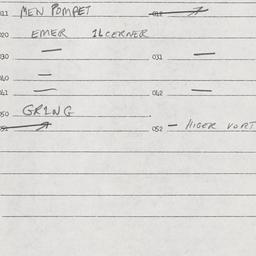 011 MEN POMPET 012
020 EMER ILCERNER
030 — 031 —
040 —
041 — 042 —
050 GRING
051 052 — HIGER VORT